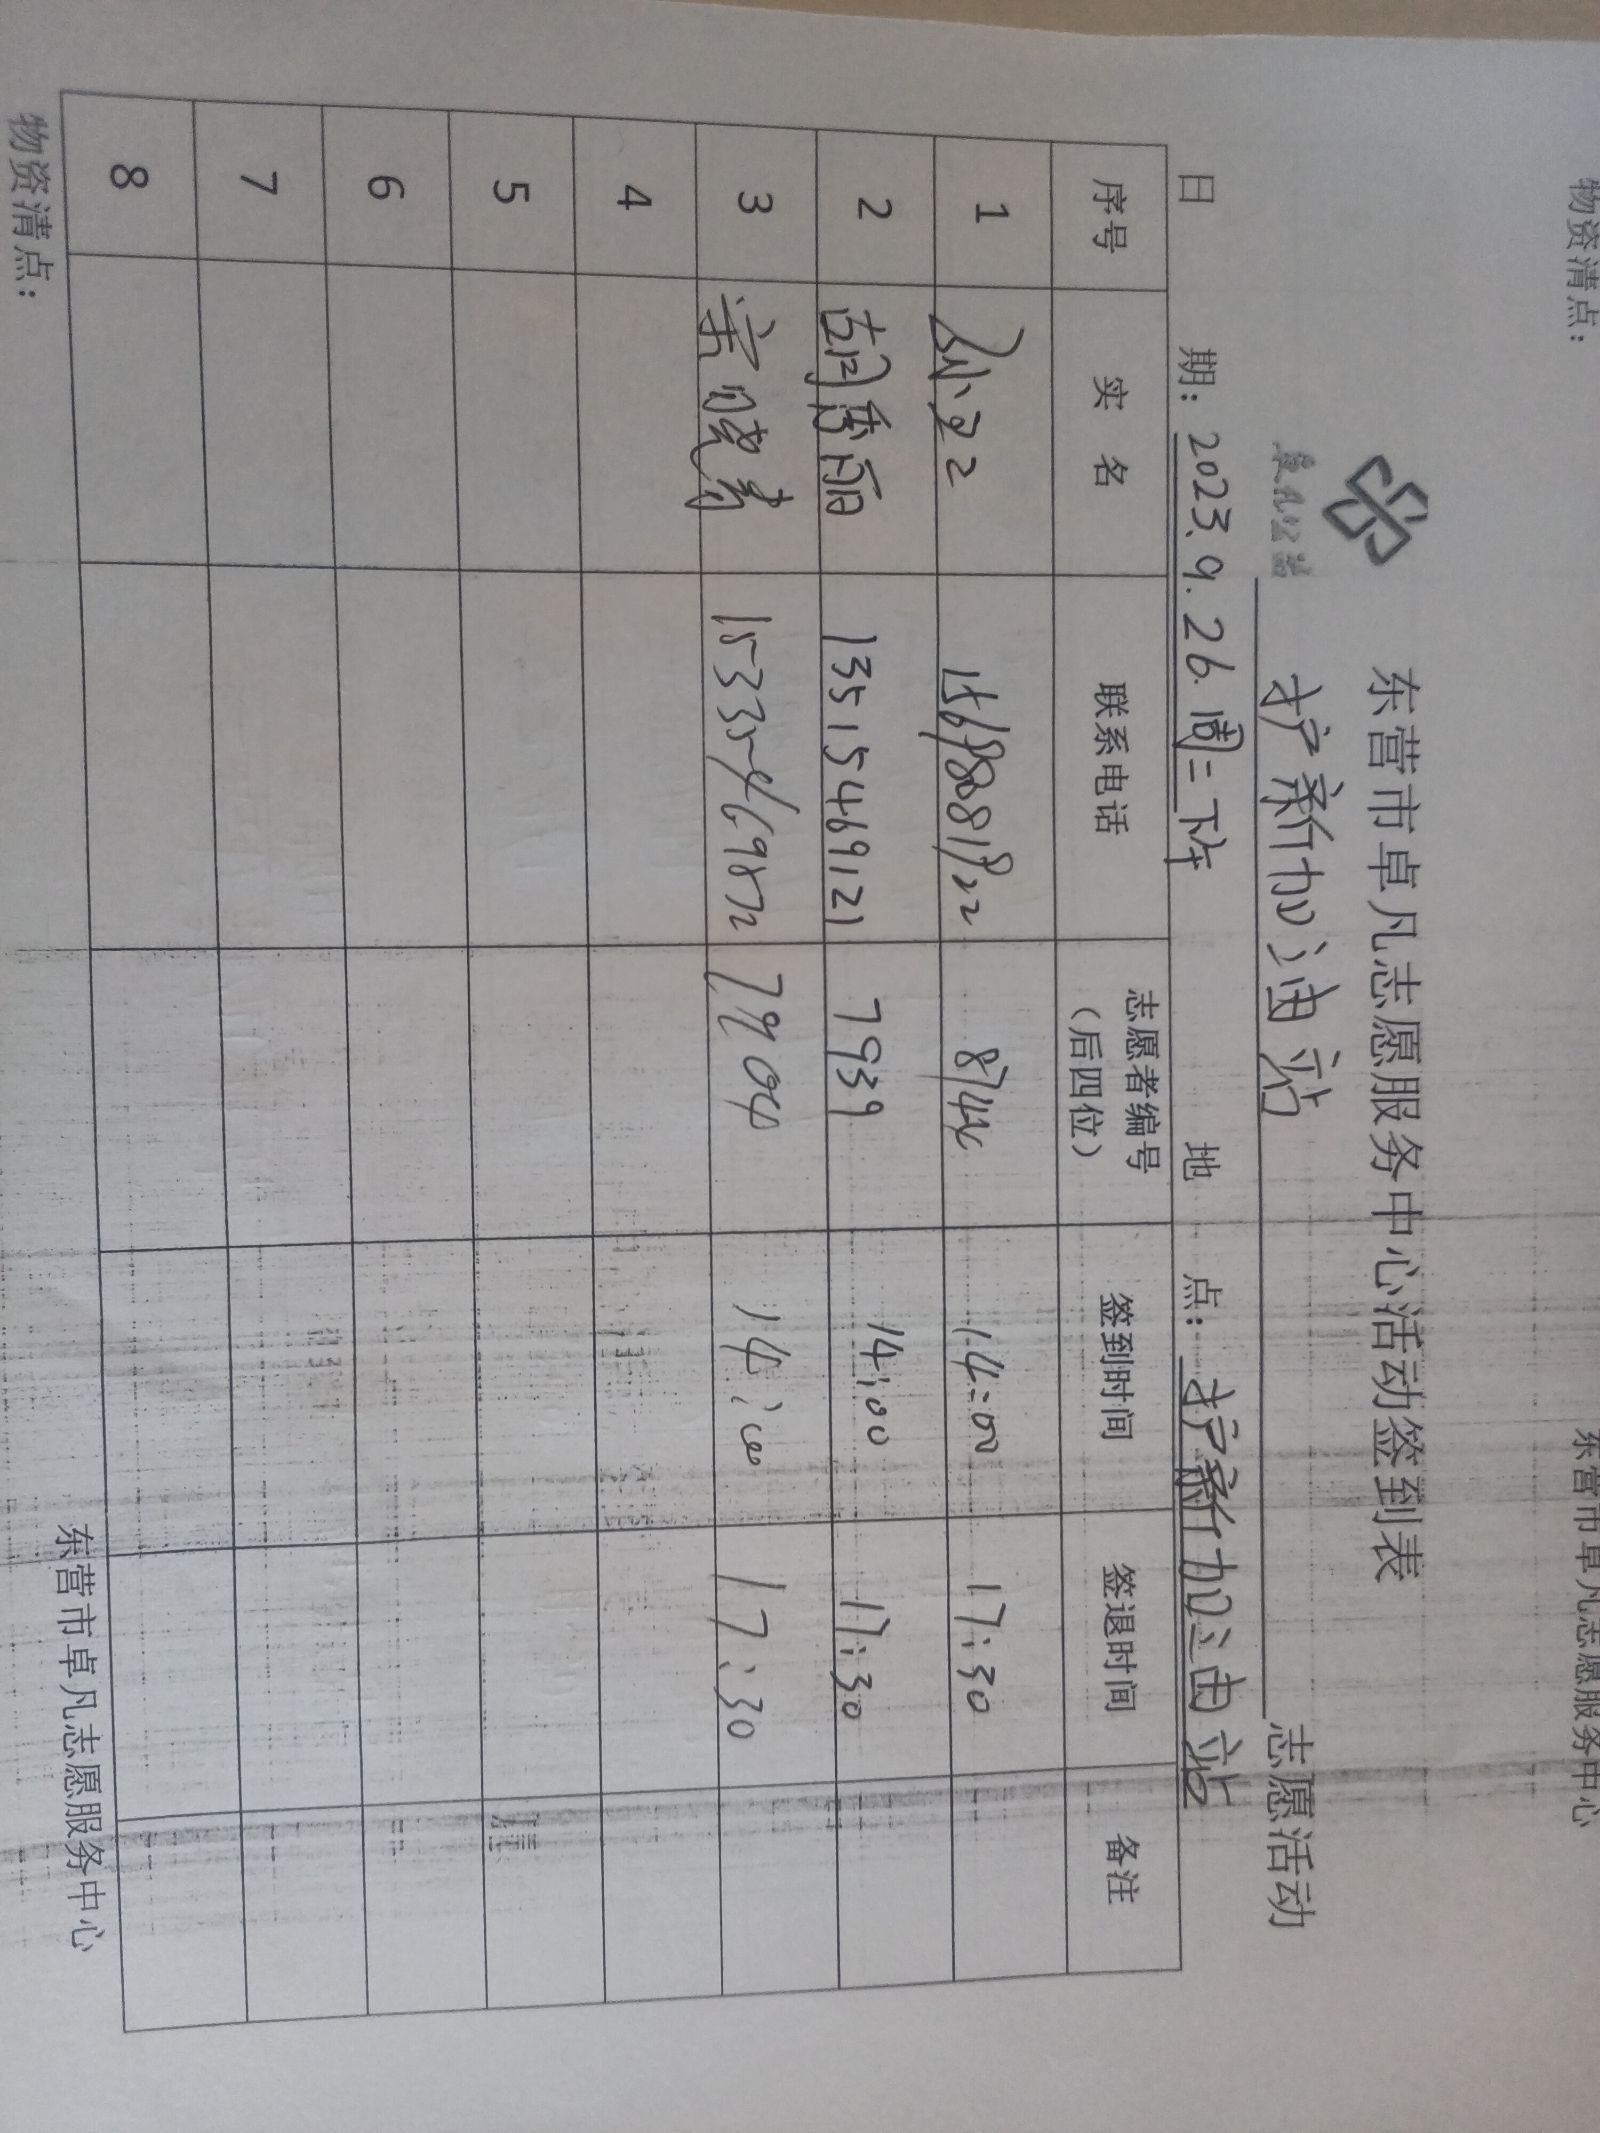 东营市卓凡志愿服务中心活动签到表
扩新加油站 志愿活动
日 期：2023.9.26.周二下午 地 点：扩新加油站
序号 实 名 联系电话 志愿者编号（后四位） 签到时间 签退时间 备注
1 8744 14:00 17:30
2 胡秀丽 13515469121 7939 14:00 17:30
3 宋晓青 15335469872 7904 14:00 17:30
4
5
6
7
8
物资清点： 东营市卓凡志愿服务中心
物资清点： 东营市卓凡志愿服务中心